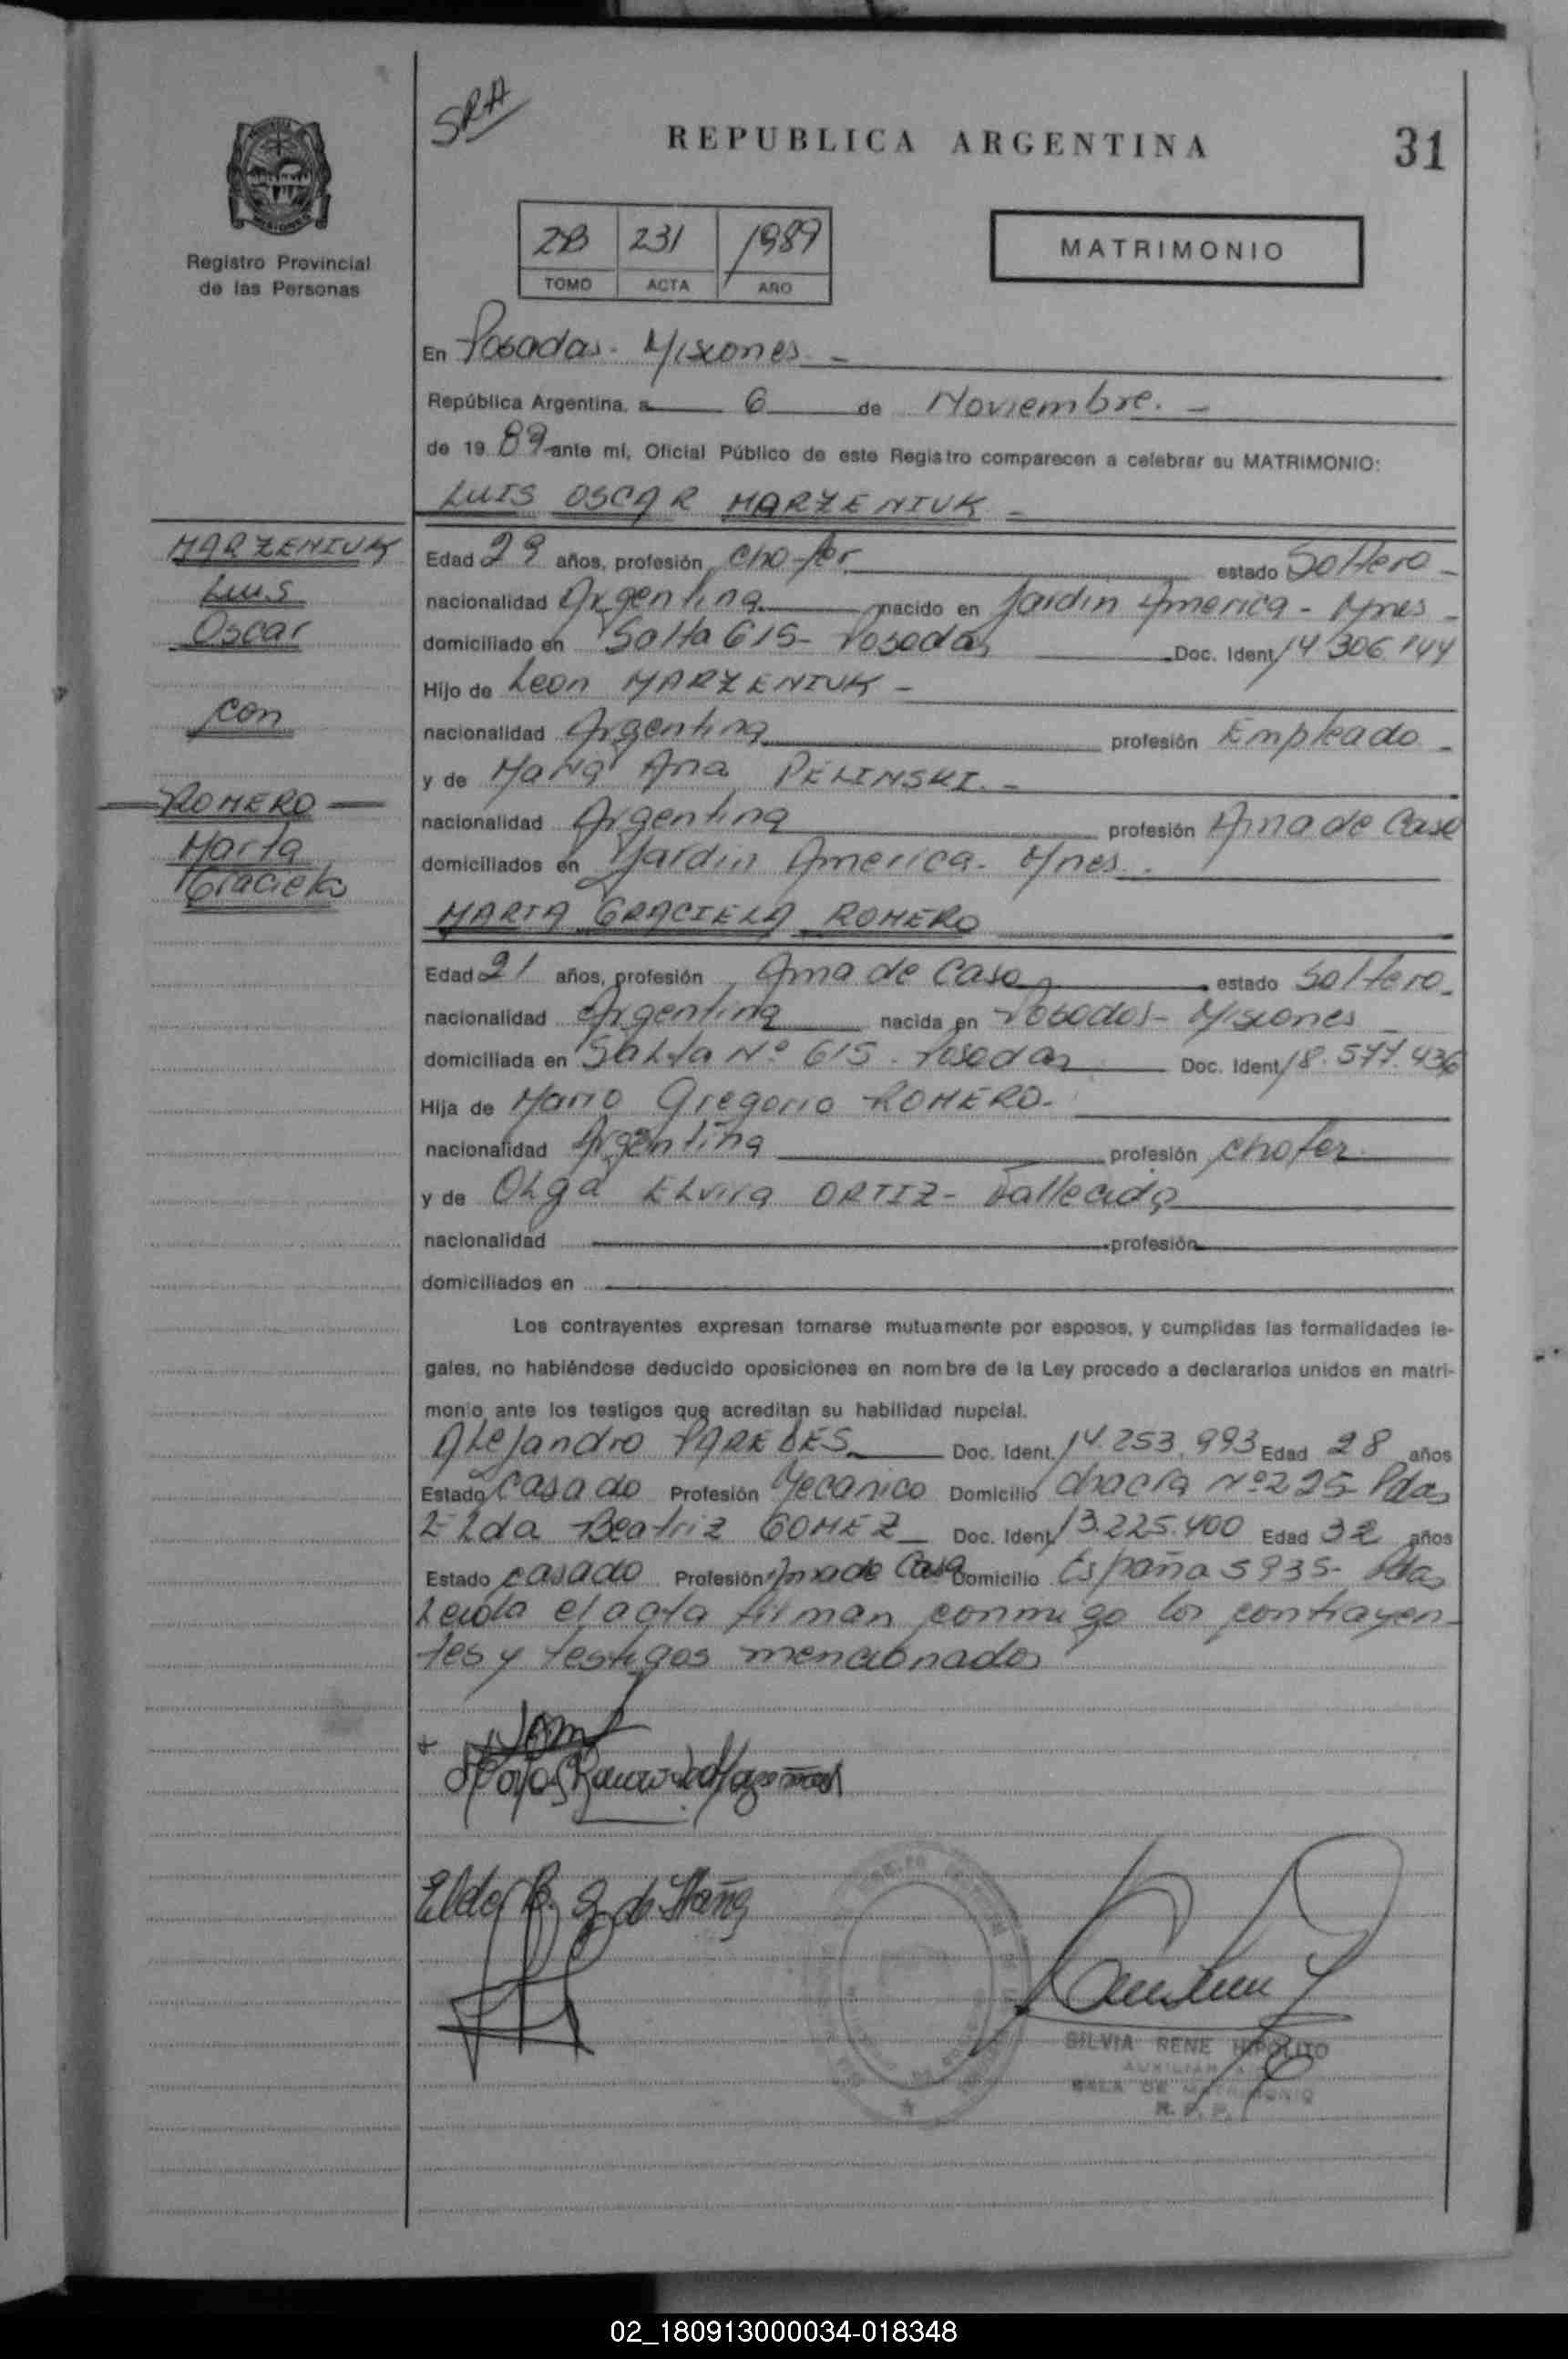 SRA
REPUBLICA ARGENTINA
31
Registro Provincial
de las Personas
2B 231 1989
TOMO ACTA AÑO
MATRIMONIO
En Posadas - Misiones -
República Argentina, a 6 de Noviembre. -
de 19 89 ante mí, Oficial Público de este Registro comparecen a celebrar su MATRIMONIO:
LUIS OSCAR MARZENIUK -
MARZENIUK
Luis
Oscar
con
ROMERO
Marta
Graciela
Edad 29 años, profesión chofer estado Soltero -
nacionalidad Argentina nacido en Jardin America - Mnes -
domiciliado en Salta 615 - Posadas Doc. Ident. 14 306 144
Hijo de Leon MARZENIUK -
nacionalidad Argentina profesión Empleado -
y de Maria Ana PELINSKI. -
nacionalidad Argentina profesión Ama de Casa
domiciliados en Jardin America - Mnes -
MARTA GRACIELA ROMERO
Edad 21 años, profesión Ama de Casa estado Soltera -
nacionalidad Argentina nacida en Posadas - Misiones -
domiciliada en Salta Nº 615 - Posadas Doc. Ident. 18.577.436
Hija de Mario Gregorio ROMERO -
nacionalidad Argentina profesión chofer
y de Olga Elvira ORTIZ - Fallecida
nacionalidad profesión
domiciliados en
Los contrayentes expresan tomarse mutuamente por esposos, y cumplidas las formalidades le-
gales, no habiéndose deducido oposiciones en nombre de la Ley procedo a declararlos unidos en matri-
monio ante los testigos que acreditan su habilidad nupcial.
Alejandro PAREDES Doc. Ident. 14.253.993 Edad 28 años
Estado Casado Profesión Mecanico Domicilio Chacra Nº 225 - Pdas
Elda Beatriz GOMEZ Doc. Ident. 13.225.400 Edad 32 años
Estado casado Profesión Ama de Casa Domicilio España 5935 - Pdas
Leida el acta firman conmigo los contrayen-
tes y testigos mencionados
Elda B. G. de
SILVIA RENE HIPOLITO
AUXILIAR
SALA DE MATRIMONIO
R. P. P.
02_180913000034-018348